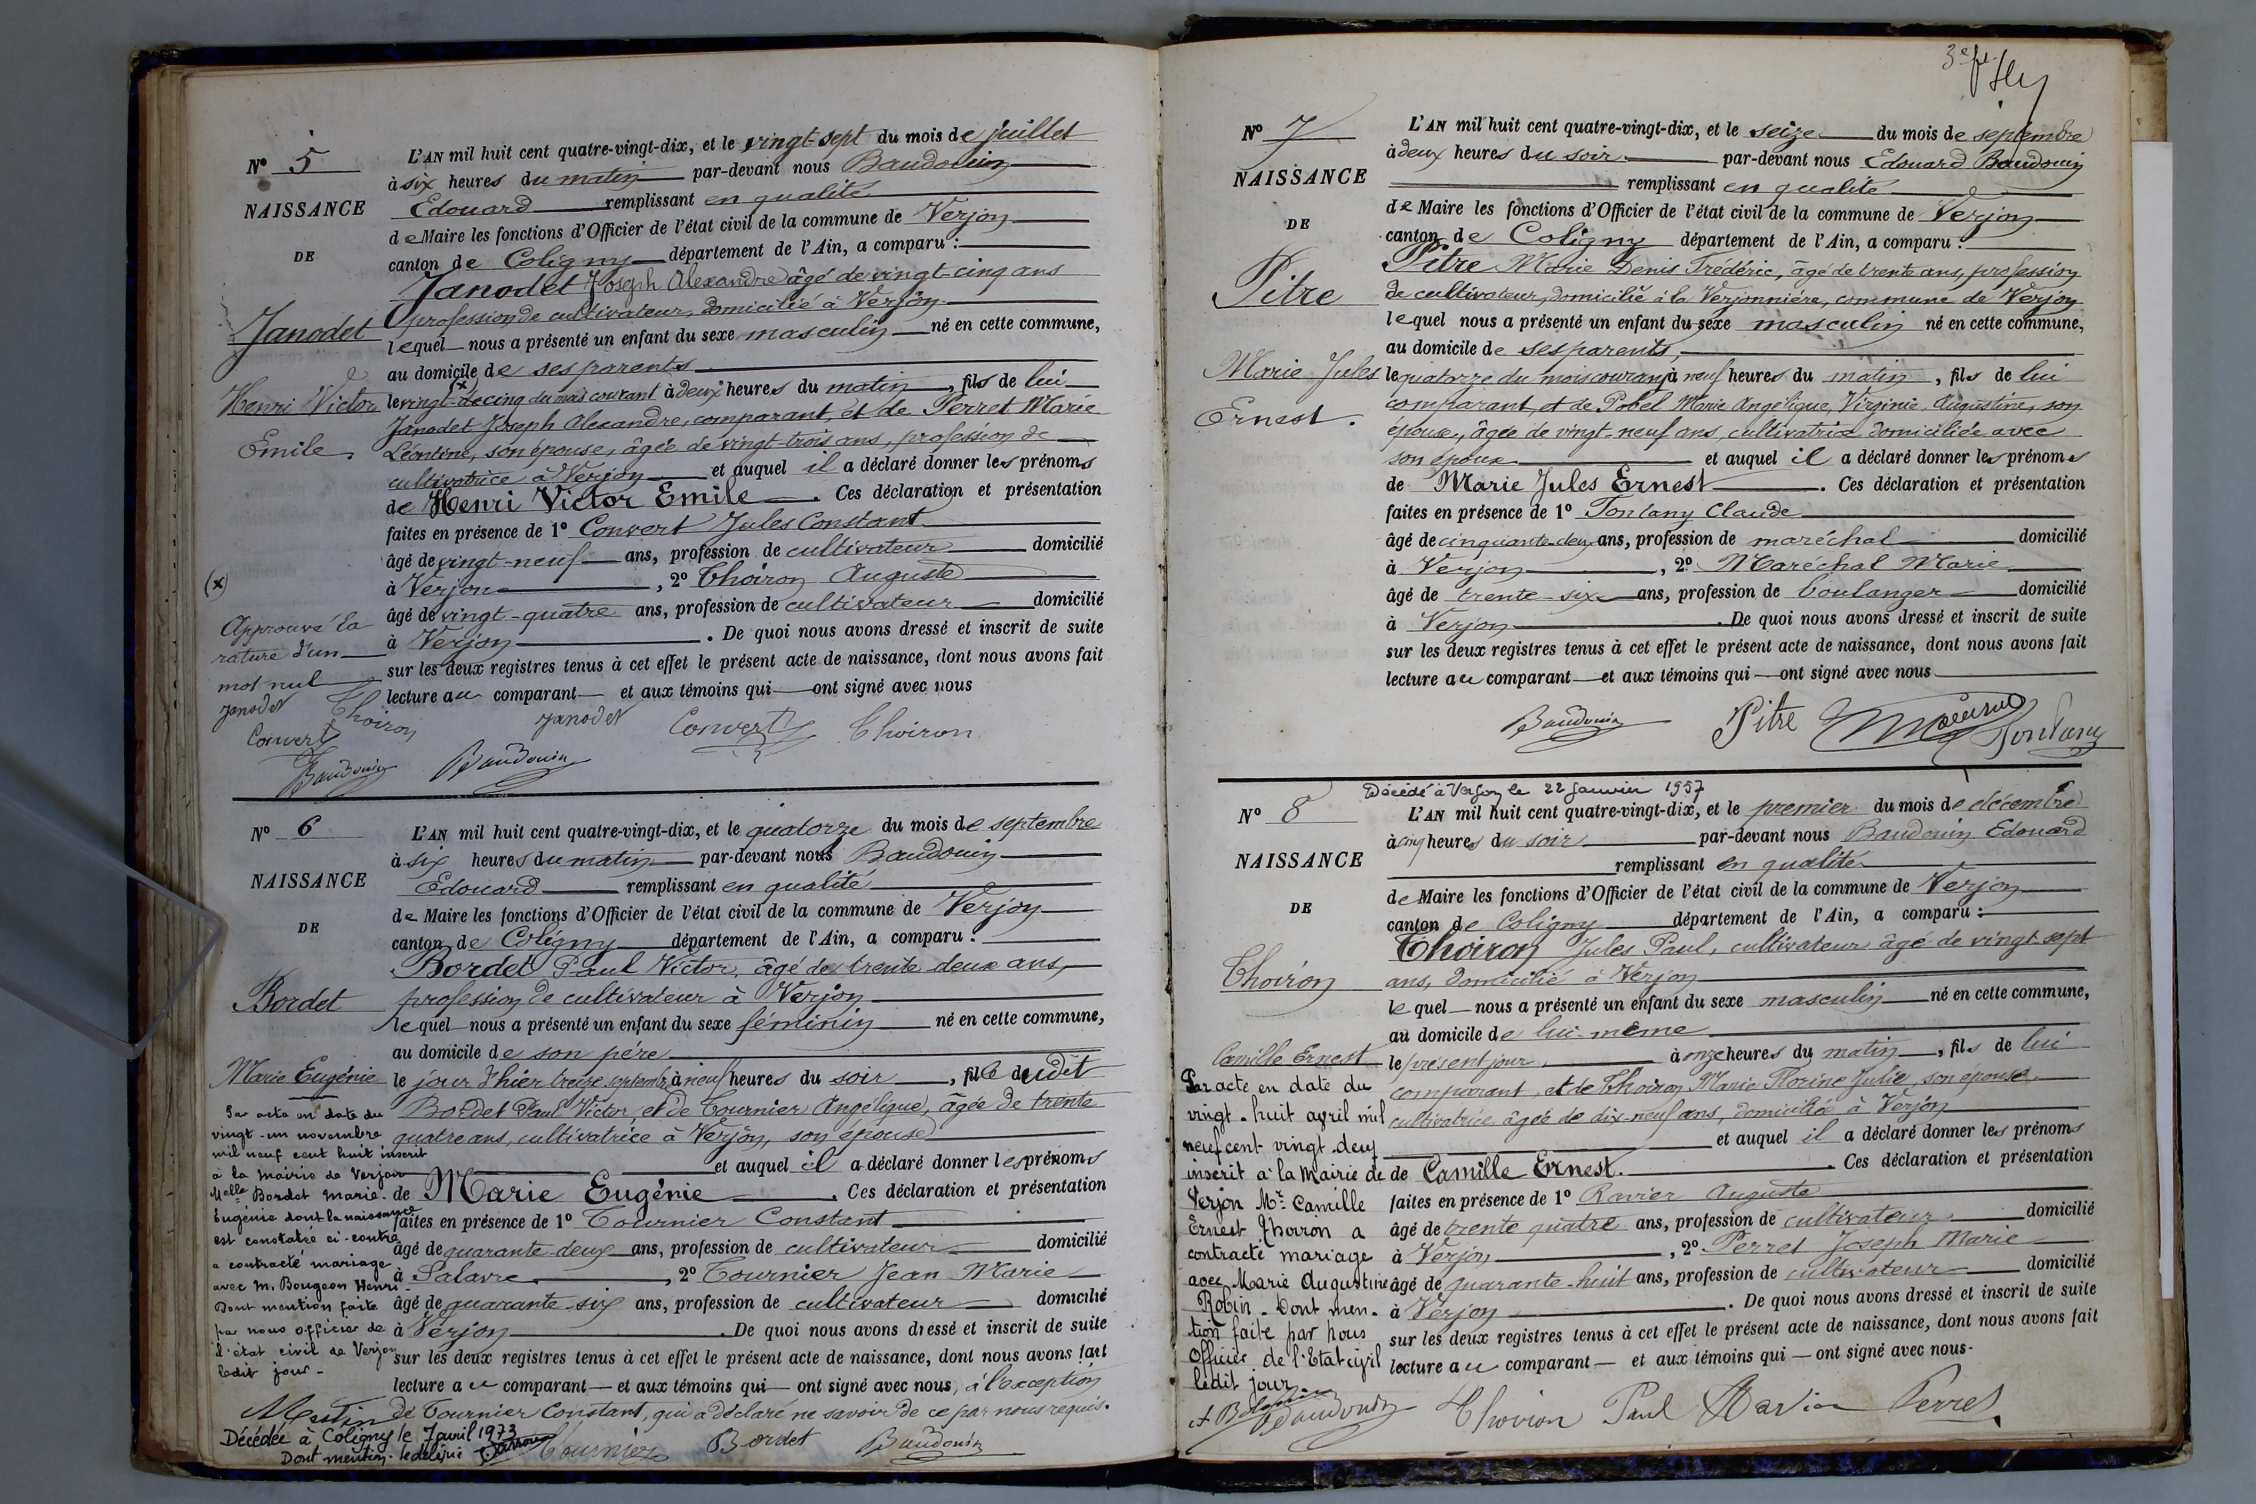 N° 5
NAISSANCE
DE
Janodet
Henri Victor
Emile
L'AN mil huit cent quatre-vingt-dix, et le vingt-sept du mois de juillet
à six heures du matin par-devant nous Baudouin
Edouard remplissant en qualité
de Maire les fonctions d'Officier de l'état civil de la commune de Verjon
canton de Coligny département de l'Ain, a comparu :
Janodet Joseph Alexandre âgé de vingt-cinq ans
profession de cultivateur, domicilié à Verjon
lequel nous a présenté un enfant du sexe masculin né en cette commune,
au domicile de ses parents
(x)
le vingt-cinq du mois courant à deux heures du matin, fils de lui
Janodet Joseph Alexandre, comparant et de Perret Marie
Léontine, son épouse, âgée de vingt-trois ans, profession de
cultivatrice à Verjon et auquel il a déclaré donner les prénoms
de Henri Victor Emile. Ces déclaration et présentation
faites en présence de 1° Convert Jules Constant
âgé de vingt-neuf ans, profession de cultivateur domicilié
à Verjon, 2° Thoiron Auguste
âgé de vingt-quatre ans, profession de cultivateur domicilié
à Verjon. De quoi nous avons dressé et inscrit de suite
sur les deux registres tenus à cet effet le présent acte de naissance, dont nous avons fait
lecture au comparant et aux témoins qui ont signé avec nous
(x)
Approuvé la
rature d'un
mot nul
Janodet Thoiron
Convert
Baudouin
Janodet Convert Thoiron
Baudouin
N° 6
NAISSANCE
DE
Bordet
Marie Eugénie
L'AN mil huit cent quatre-vingt-dix, et le quatorze du mois de septembre
à six heures du matin par-devant nous Baudouin
Edouard remplissant en qualité
de Maire les fonctions d'Officier de l'état civil de la commune de Verjon
canton de Coligny département de l'Ain, a comparu :
Bordet Paul Victor, âgé de trente deux ans,
profession de cultivateur à Verjon
lequel nous a présenté un enfant du sexe féminin né en cette commune,
au domicile de son père
le jour d'hier treize septembre à neuf heures du soir, fille dudit
Bordet Paul Victor et de Tournier Angélique, âgée de trente
quatre ans, cultivatrice à Verjon, son épouse
et auquel il a déclaré donner les prénoms
de Marie Eugénie. Ces déclaration et présentation
faites en présence de 1° Tournier Constant
âgé de quarante-deux ans, profession de cultivateur domicilié
à Salavre, 2° Tournier Jean Marie
âgé de quarante-six ans, profession de cultivateur domicilié
à Verjon. De quoi nous avons dressé et inscrit de suite
sur les deux registres tenus à cet effet le présent acte de naissance, dont nous avons fait
lecture au comparant et aux témoins qui ont signé avec nous, à l'exception
de Tournier Constant, qui a déclaré ne savoir de ce par nous requis.
Tournier Bordet Baudouin
Par acte en date du
vingt-un novembre
mil neuf cent huit inscrit
à la Mairie de Verjon
Melle Bordet Marie-
Eugénie dont la naissance
est constatée ci-contre
a contracté mariage
avec M. Bougeon Henri-
Dont mention faite
par nous officier de
l'état civil de Verjon
ledit jour-
Décédée à Coligny le 7 avril 1973
Dont mention. le délégué
3e ft
N° 7
NAISSANCE
DE
Pitre
Marie Jules
Ernest.
L'AN mil huit cent quatre-vingt-dix, et le seize du mois de septembre
à deux heures du soir par-devant nous Edouard Baudouin
remplissant en qualité
de Maire les fonctions d'Officier de l'état civil de la commune de Verjon
canton de Coligny département de l'Ain, a comparu :
Pitre Marie Denis Frédéric, âgé de trente ans, profession
de cultivateur, domicilié à la Verjonnière, commune de Verjon
lequel nous a présenté un enfant du sexe masculin né en cette commune,
au domicile de ses parents,
le quatorze du mois courant à neuf heures du matin, fils de lui
comparant, et de Pobel Marie Angélique, Virginie, Augustine, son
épouse, âgée de vingt-neuf ans, cultivatrice domiciliée avec
son époux et auquel il a déclaré donner les prénoms
de Marie Jules Ernest. Ces déclaration et présentation
faites en présence de 1° Fontany Claude
âgé de cinquante-deux ans, profession de maréchal domicilié
à Verjon, 2° Maréchal Marie
âgé de trente-six ans, profession de boulanger domicilié
à Verjon. De quoi nous avons dressé et inscrit de suite
sur les deux registres tenus à cet effet le présent acte de naissance, dont nous avons fait
lecture au comparant et aux témoins qui ont signé avec nous
Baudouin Pitre Fontany
Décédé à Verjon le 22 Janvier 1957
N° 8
NAISSANCE
DE
Thoiron
Camille Ernest
L'AN mil huit cent quatre-vingt-dix, et le premier du mois de décembre
à cinq heures du soir par-devant nous Baudouin Edouard
remplissant en qualité
de Maire les fonctions d'Officier de l'état civil de la commune de Verjon
canton de Coligny département de l'Ain, a comparu :
Thoiron Jules Paul, cultivateur âgé de vingt-sept
ans, domicilié à Verjon
lequel nous a présenté un enfant du sexe masculin né en cette commune,
au domicile de lui-même
le présent jour, à onze heures du matin, fils de lui
comparant, et de Thoiron Marie Florine Julie, son épouse,
cultivatrice âgée de dix-neuf ans, domiciliée à Verjon
et auquel il a déclaré donner les prénoms
de Camille Ernest. Ces déclaration et présentation
faites en présence de 1° Ravier Auguste
âgé de trente quatre ans, profession de cultivateur domicilié
à Verjon, 2° Perret Joseph Marie
âgé de quarante-huit ans, profession de cultivateur domicilié
à Verjon. De quoi nous avons dressé et inscrit de suite
sur les deux registres tenus à cet effet le présent acte de naissance, dont nous avons fait
lecture au comparant et aux témoins qui ont signé avec nous-
Par acte en date du
vingt-huit avril mil
neuf cent vingt-deux
inscrit à la Mairie de
Verjon Mr Camille
Ernest Thoiron a
contracté mariage
avec Marie Augustine
Robin. Dont men-
tion faite par nous
Officier de l'Etat civil
ledit jour.
Baudouin Thoiron Paul Ravier Perret